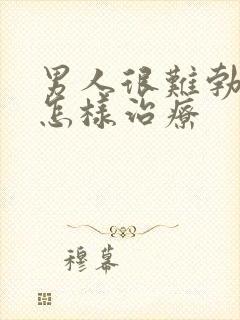 男人很難勃
怎樣治療
穆幕